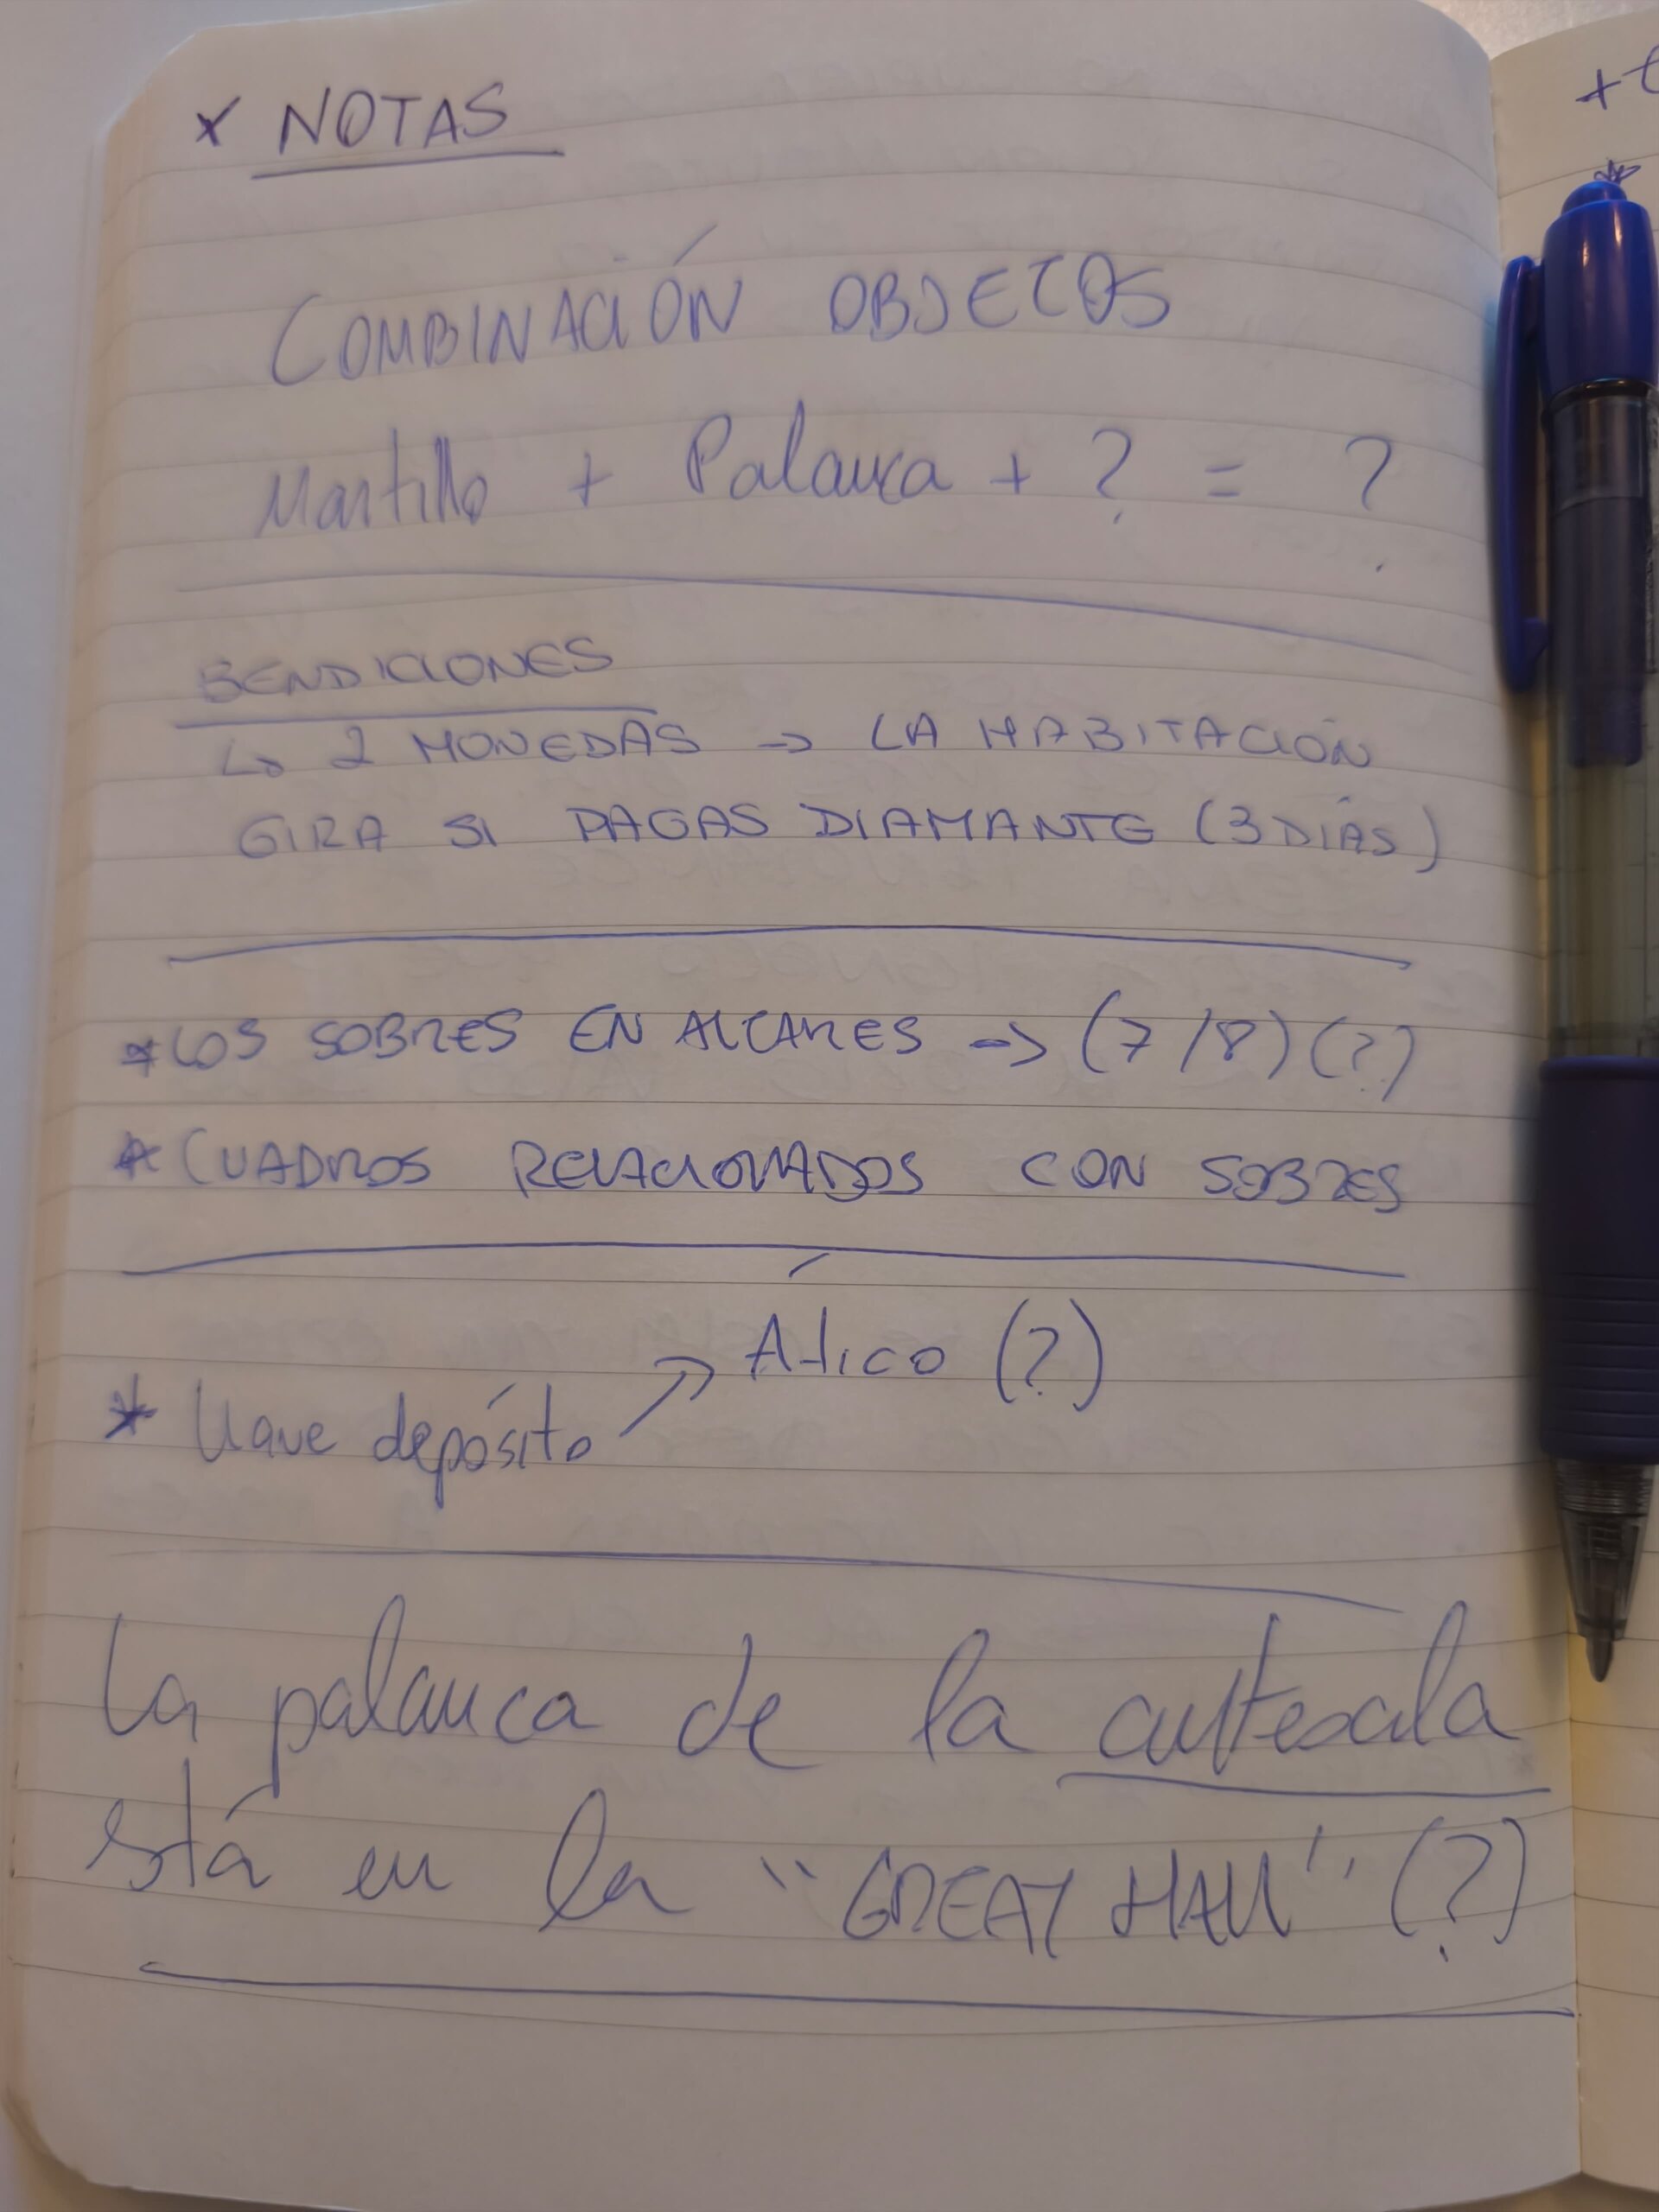 x NOTAS
COMBINACIÓN OBJETOS
Martillo + Palanca + ? = ?
BENDICIONES
↳ 2 MONEDAS → LA HABITACIÓN
GIRA SI PAGAS DIAMANTE (3 DÍAS)
* LOS SOBRES EN ALTARES → (7/8) (?)
* CUADROS RELACIONADOS CON SOBRES
Ático (?)
* llave depósito ↗
La palanca de la antesala
está en la "GREAT HALL" (?)